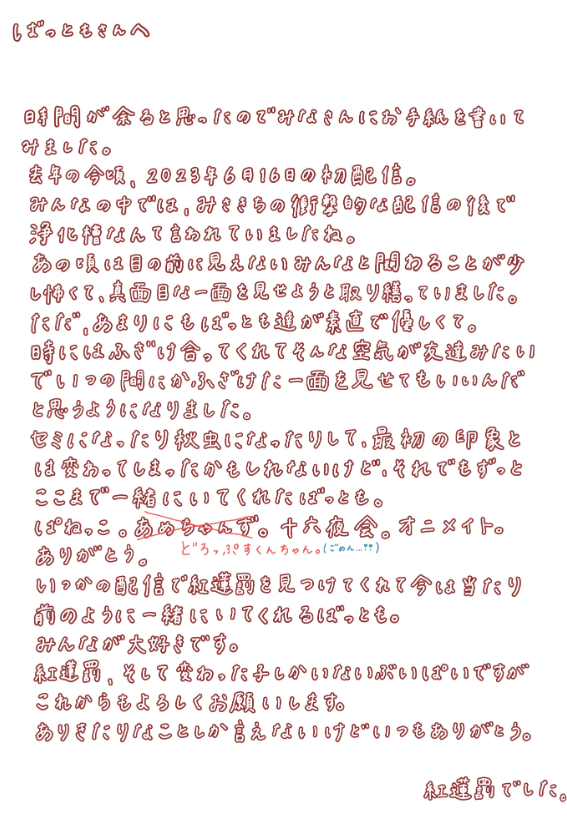 しばっともさんへ
時間が余ると思ったのでみなさんにお手紙を書いて
みました。
去年の今頃、2023年6月16日の初配信。
みんなの中では、みさきちの衝撃的な配信の後で
浄化槽なんて言われていましたね。
あの頃は目の前に見えないみんなと関わることが少
し怖くて、真面目な一面を見せようと取り繕っていました。
ただ、あまりにもばっとも達が素直で優しくて。
時にはふざけ合ってくれてそんな空気が友達みたい
でいつの間にかふざけた一面を見せてもいいんだ
と思うようになりました。
セミになったり秋虫になったりして、最初の印象と
は変わってしまったかもしれないけど、それでもずっと
ここまで一緒にいてくれたばっとも。
ぱねっこ。あめちゃんず。十六夜会。オニメイト。
どろっぷすくんちゃん。(ごめん...!!)
ありがとう。
いつかの配信で紅蓮罰を見つけてくれて今は当たり
前のように一緒にいてくれるばっとも。
みんなが大好きです。
紅蓮罰、そして変わった子しかいないぶいぱいですが
これからもよろしくお願いします。
ありきたりなことしか言えないけどいつもありがとう。
紅蓮罰でした。